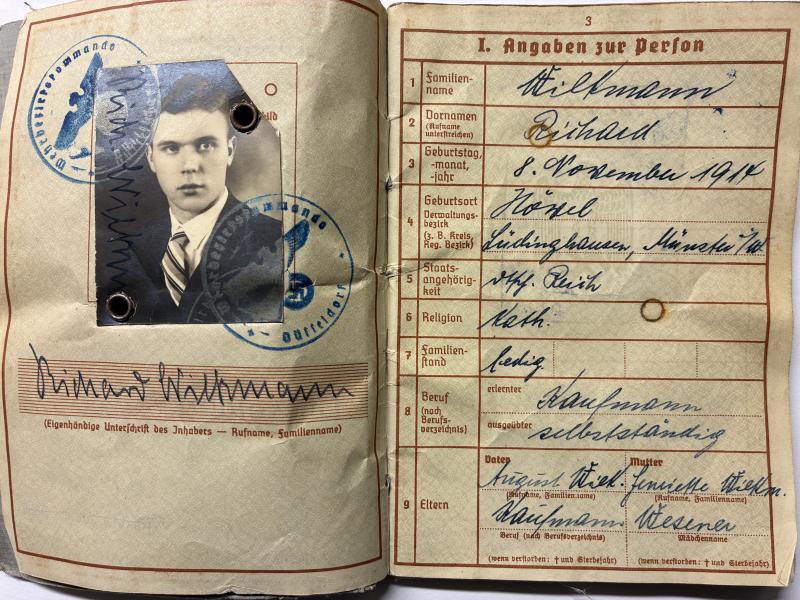 Wehrbezirkskommando
Wehrbezirkskommando
Düsseldorf
Richard Wilkmann
(Eigenhändige Unterschrift des Inhabers — Rufname, Familienname)
3
I. Angaben zur Person
1 Familien-
name Wilkmann
2 Vornamen
(Rufname
unterstreichen) Richard
3 Geburtstag,
-monat,
-jahr 8. November 1914
4 Geburtsort Hövel
Verwaltungs-
bezirk
(z. B. Kreis,
Reg. Bezirk) Lüdinghausen, Münster i/W
5 Staats-
angehörig-
keit dtsch. Reich
6 Religion Kath.
7 Familien-
stand ledig.
8 Beruf
(nach
Berufs-
verzeichnis)
erlernter Kaufmann
ausgeübter selbstständig
9 Eltern
Vater Mutter
August Wilk. Henriette Wilkm.
(Rufname, Familienname) (Rufname, Familienname)
Kaufmann Wesener
Beruf (nach Berufsverzeichnis) Mädchenname
(wenn verstorben: † und Sterbejahr) (wenn verstorben: † und Sterbejahr)